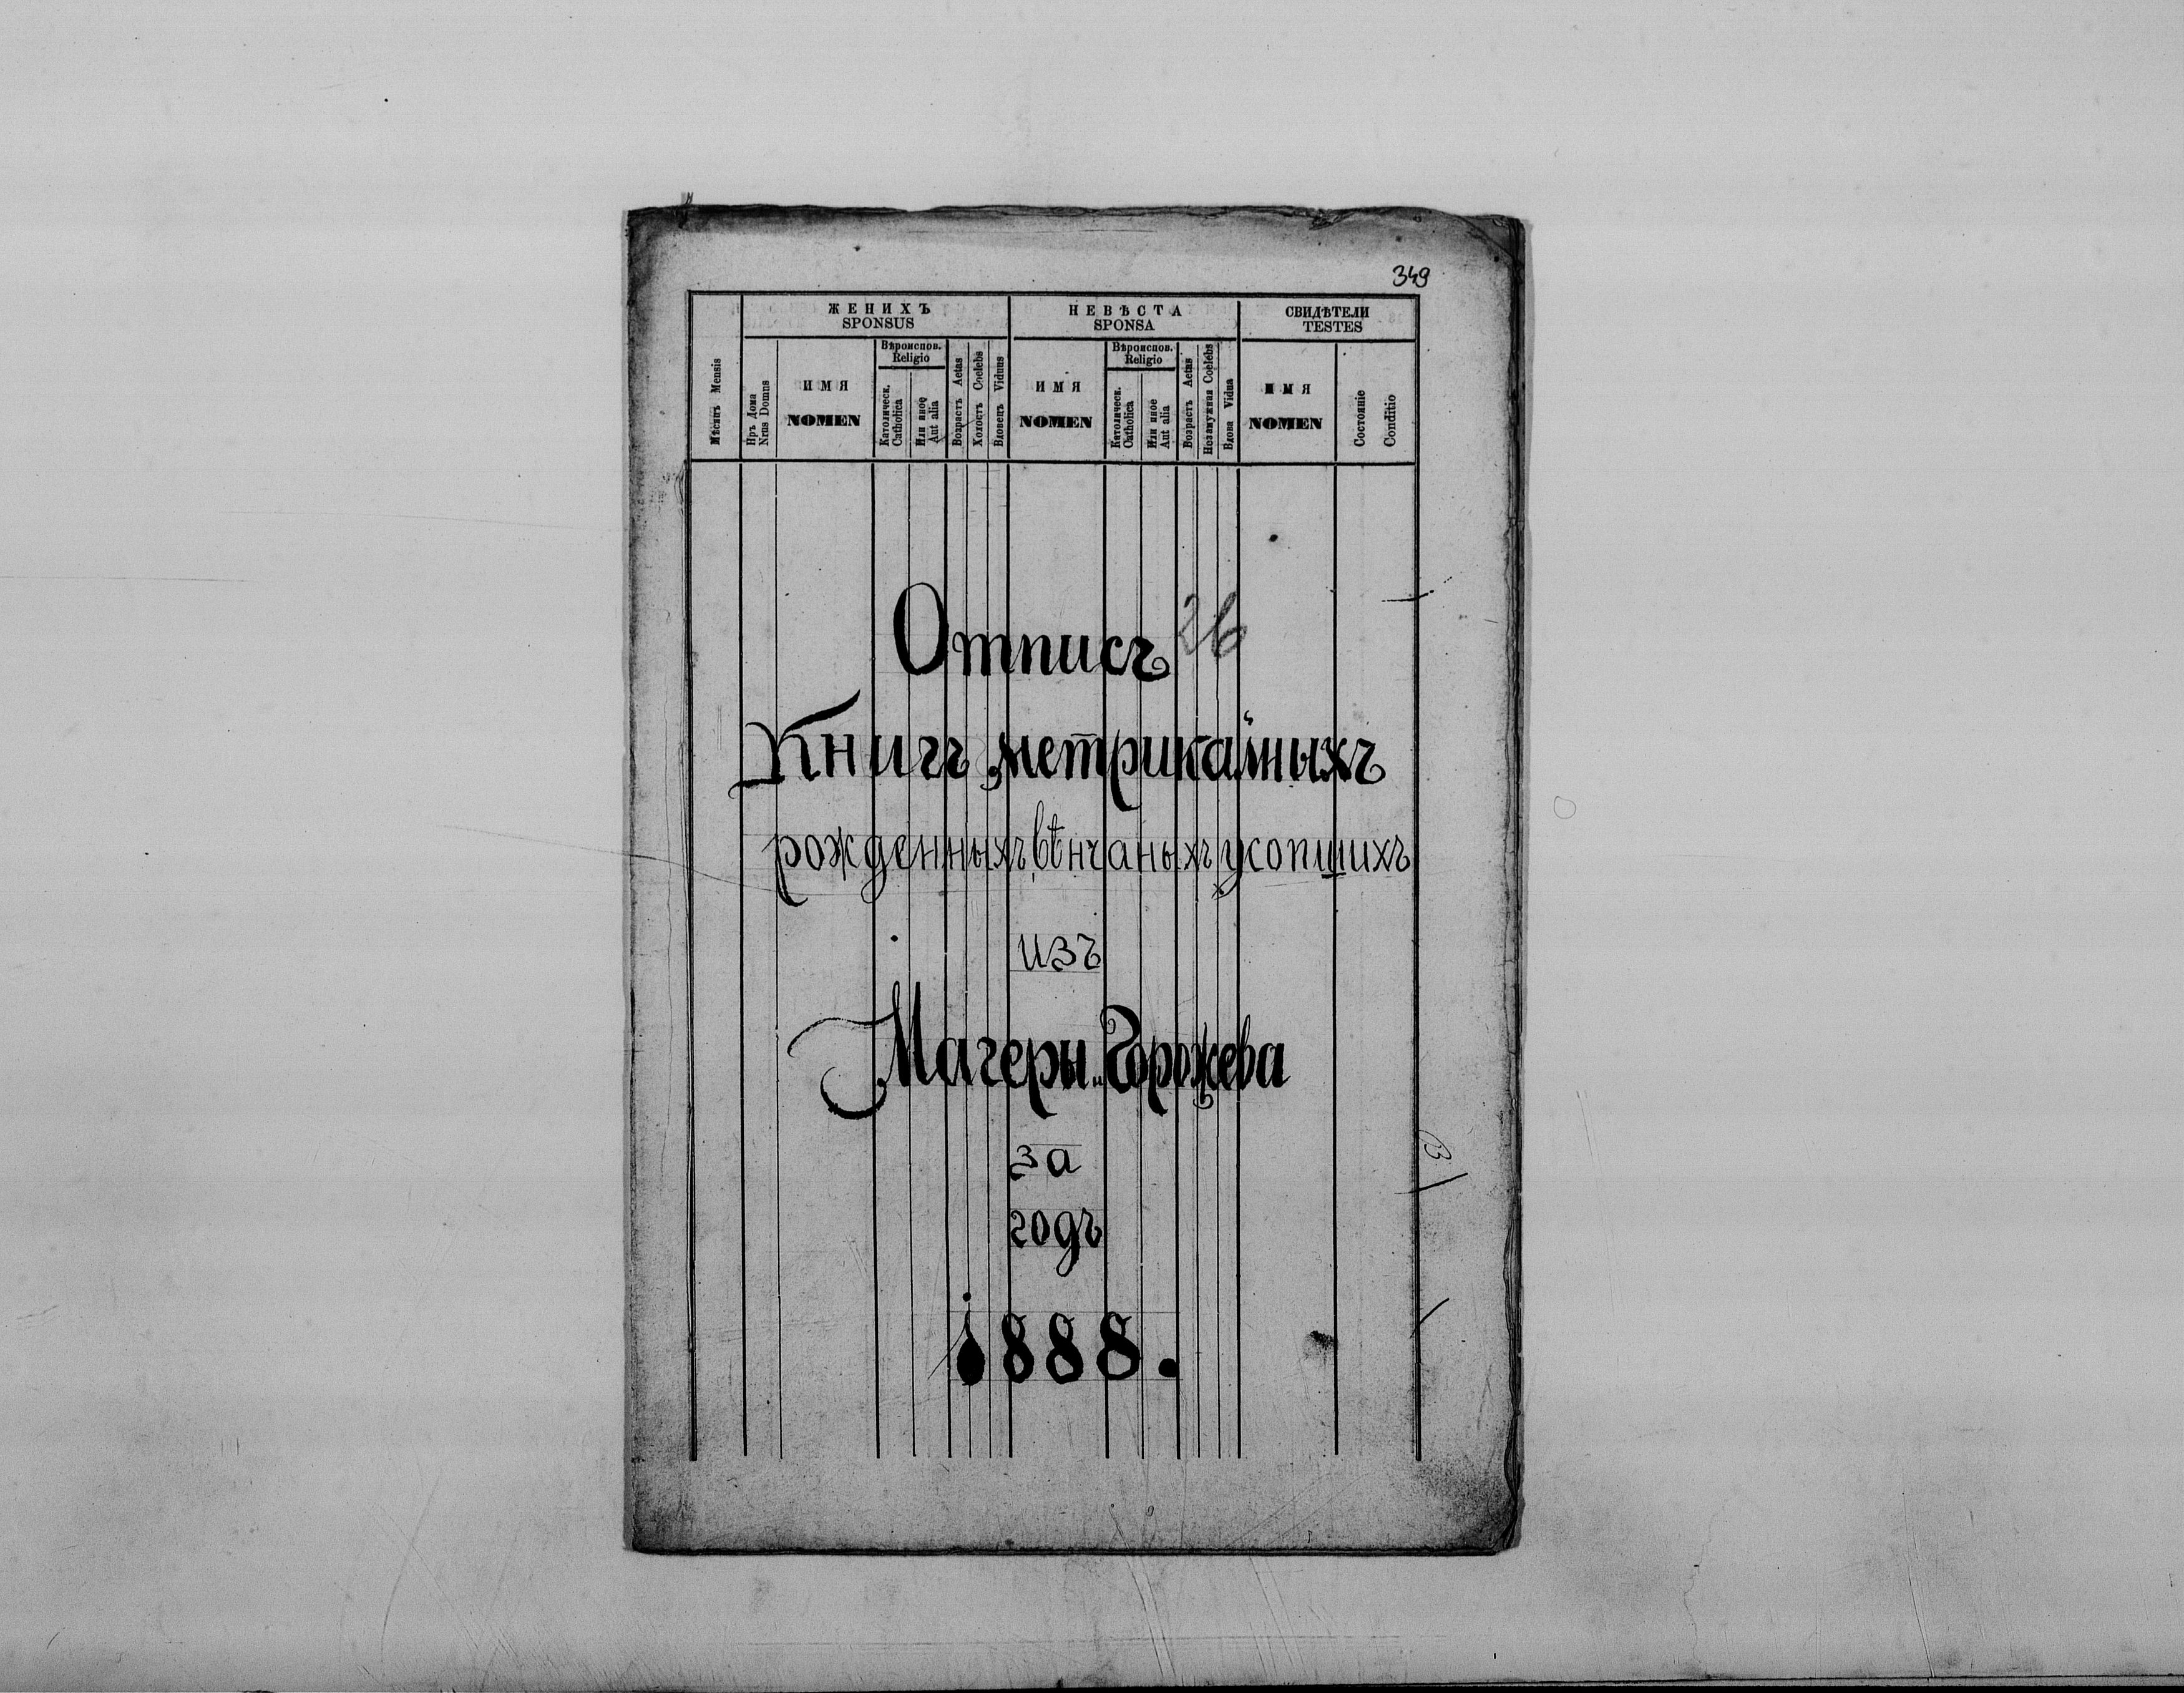 349
ЖЕНИХЪ
SPONSUS
НЕВѢСТА
SPONSA
СВИДѢТЕЛИ
TESTES
Мѣсяцъ Mensis
Нръ Дома
Nrus Domus
ИМЯ
NOMEN
Вѣроиспов.
Religio
Католическ.
Catholica
Или иное
Aut alia
Возрастъ Aetas
Холостъ Coelebs
Вдовецъ Viduus
ИМЯ
NOMEN
Вѣроиспов.
Religio
Католическ.
Catholica
Или иное
Aut alia
Возрастъ Aetas
Незамужная Coelebs
Вдова Vidua
ИМЯ
NOMEN
Состояніе
Conditio
Отписъ 26
Книгъ метрикалныхъ
рожденныхъ, вѣнчаныхъ усопшихъ
изъ
Магеры-Горожева
за
годъ
1888.